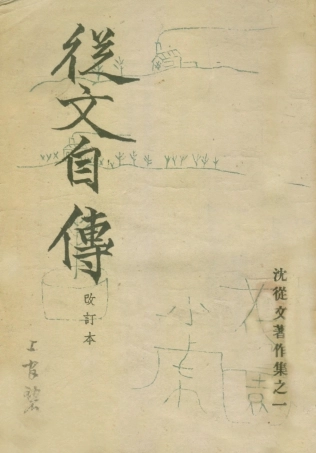 從文自傳
改訂本
沈從文著作集之一
小